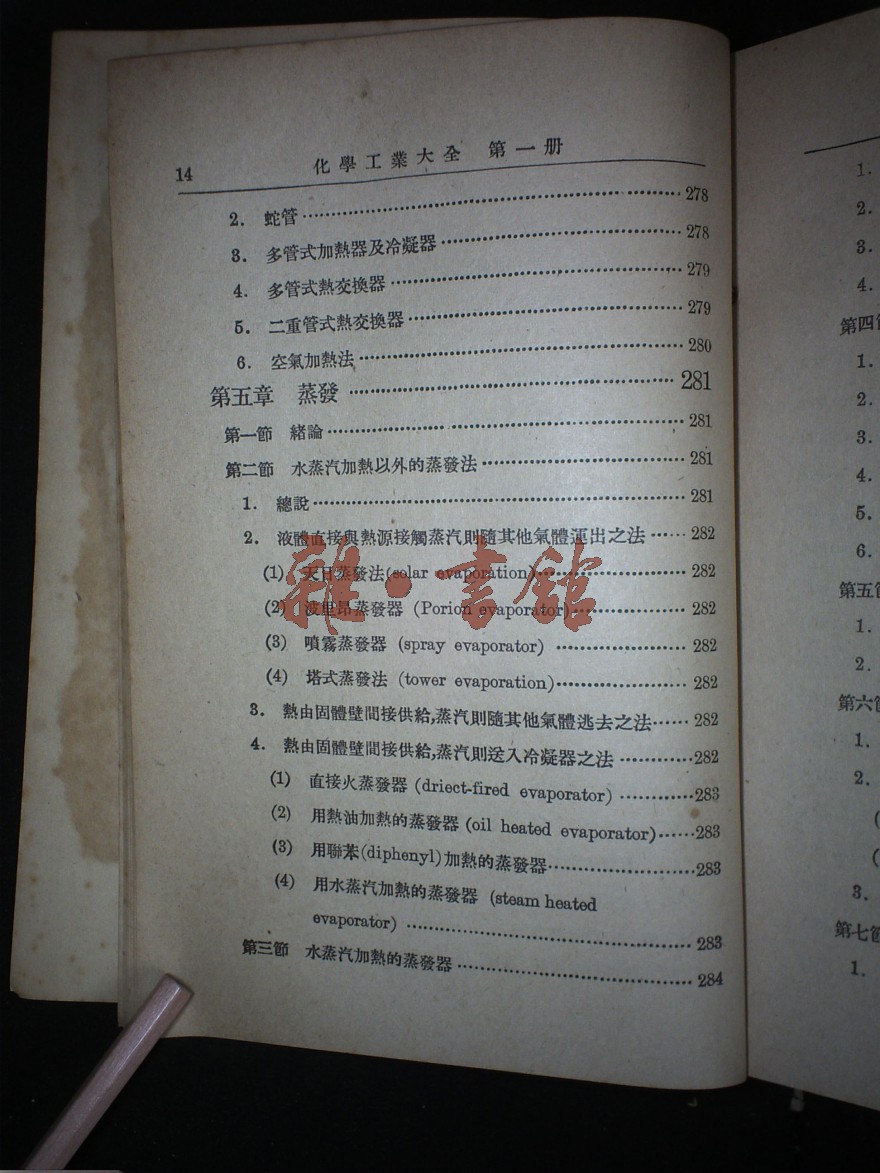 14 化學工業大全 第一册
2. 蛇管 278
3. 多管式加熱器及冷凝器 278
4. 多管式熱交換器 279
5. 二重管式熱交換器 279
6. 空氣加熱法 280
第五章 蒸發 281
第一節 緒論 281
第二節 水蒸汽加熱以外的蒸發法 281
1. 總說 281
2. 液體直接與熱源接觸蒸汽則隨其他氣體運出之法 282
(1) 天日蒸發法(solar evaporation) 282
(2) 波里昂蒸發器 (Porion evaporator) 282
(3) 噴霧蒸發器 (spray evaporator) 282
(4) 塔式蒸發法 (tower evaporation) 282
3. 熱由固體壁間接供給,蒸汽則隨其他氣體逃去之法 282
4. 熱由固體壁間接供給,蒸汽則送入冷凝器之法 282
(1) 直接火蒸發器 (driect-fired evaporator) 283
(2) 用熱油加熱的蒸發器 (oil heated evaporator) 283
(3) 用聯苯(diphenyl)加熱的蒸發器 283
(4) 用水蒸汽加熱的蒸發器 (steam heated
evaporator) 283
第三節 水蒸汽加熱的蒸發器 284
雜·書館
1.
2.
3.
4.
第四節
1.
2.
3.
4.
5.
6.
第五節
1.
2.
第六節
1.
2.
(
(
3.
第七節
1.